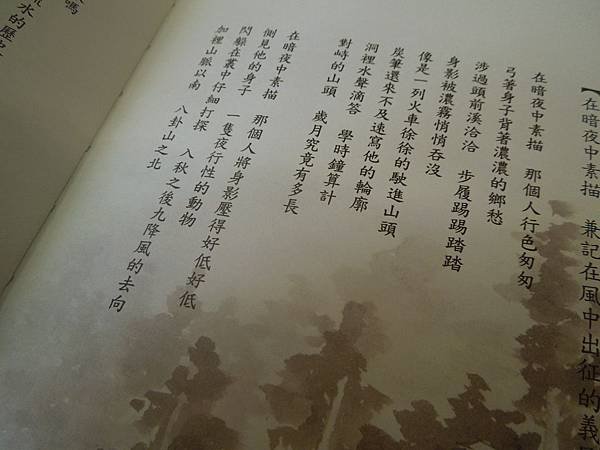 【在暗夜中素描　兼記在風中出征的義
在暗夜中素描　那個人行色匆匆
弓著身子背著濃濃的鄉愁
涉過頭前溪洽洽　步履踢踢踏踏
身影被濃霧悄悄吞沒
像是一列火車徐徐的駛進山頭
炭筆還來不及速寫他的輪廓
洞裡水聲滴答　學時鐘算計
對峙的山頭　歲月究竟有多長
在暗夜中素描　那個人將身影壓得好低好低
側見他的身子　一隻夜行性的動物
閃躲在叢中仔細打探　入秋之後九降風的去向
加裡山脈以南　八卦山之北
嗎
水的歷史